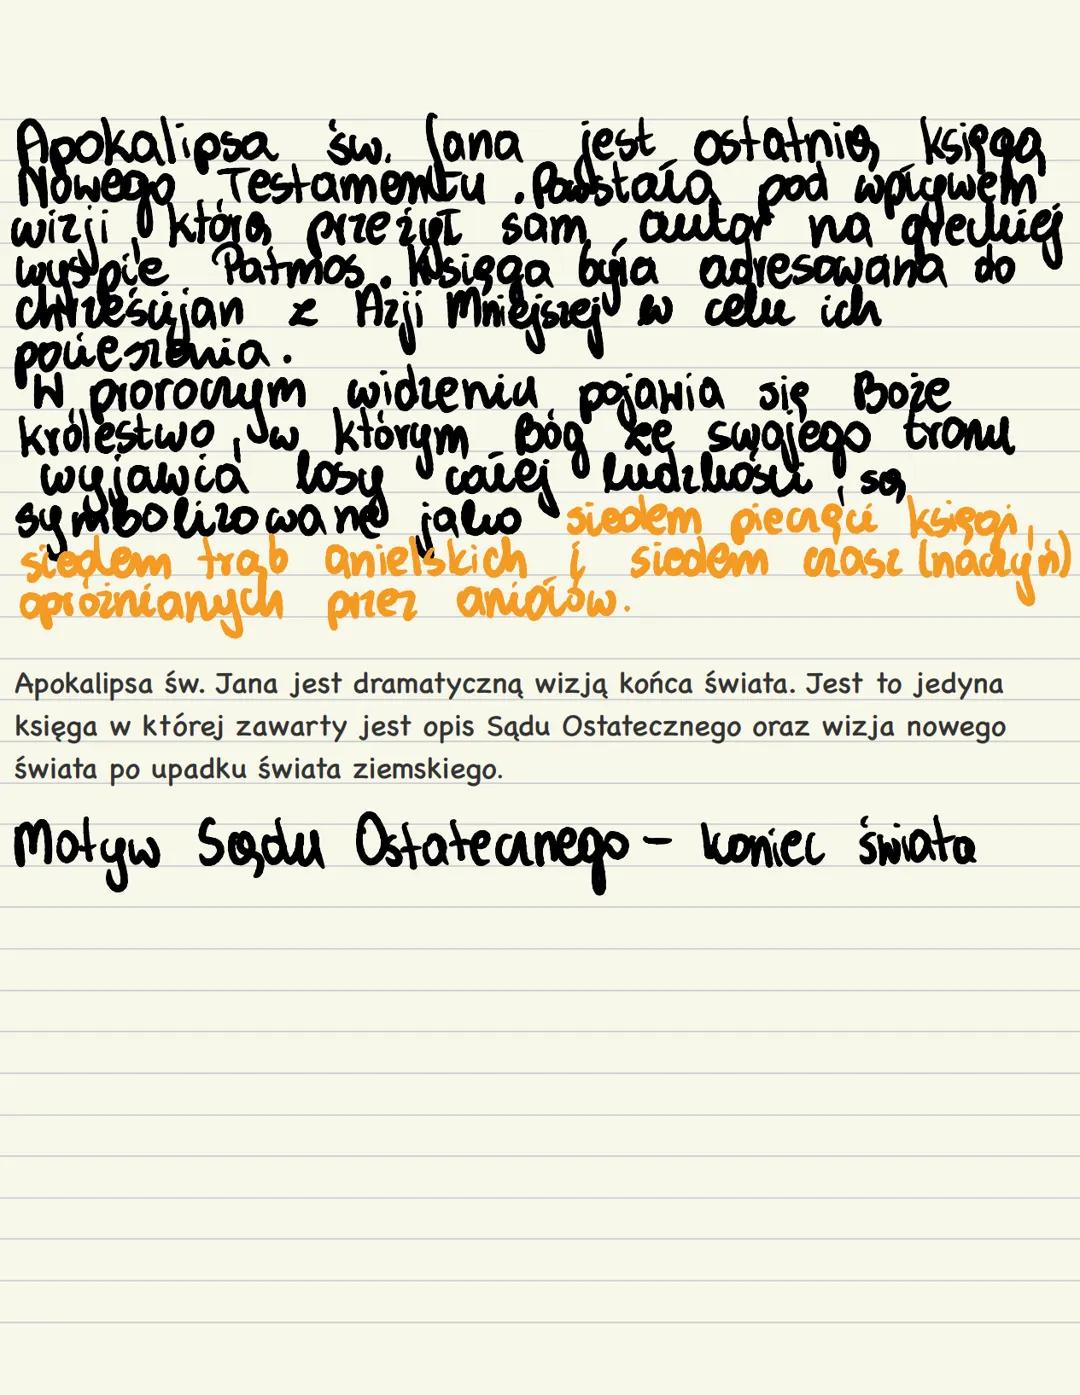 Apokalipsa św. Jana jest ostatnią księgą
Nowego Testamentu. Powstała pod wpływem
wizji, którą przeżył sam autor na greckiej
wyspie Patmos. Księga była adresowana do
chrześcijan z Azji Mniejszej w celu ich
pocieszenia.
W proroczym widzeniu pojawia się Boże
królestwo, w którym Bóg ze swojego tronu
wyjawia losy całej ludzkości, są
symbolizowane jako siedem pieczęci księgi,
siedem trąb anielskich i siedem czasz (naczyń)
opróżnianych przez aniołów.
Apokalipsa św. Jana jest dramatyczną wizją końca świata. Jest to jedyna
księga w której zawarty jest opis Sądu Ostatecznego oraz wizja nowego
świata po upadku świata ziemskiego.
Motyw Sądu Ostatecznego - koniec świata